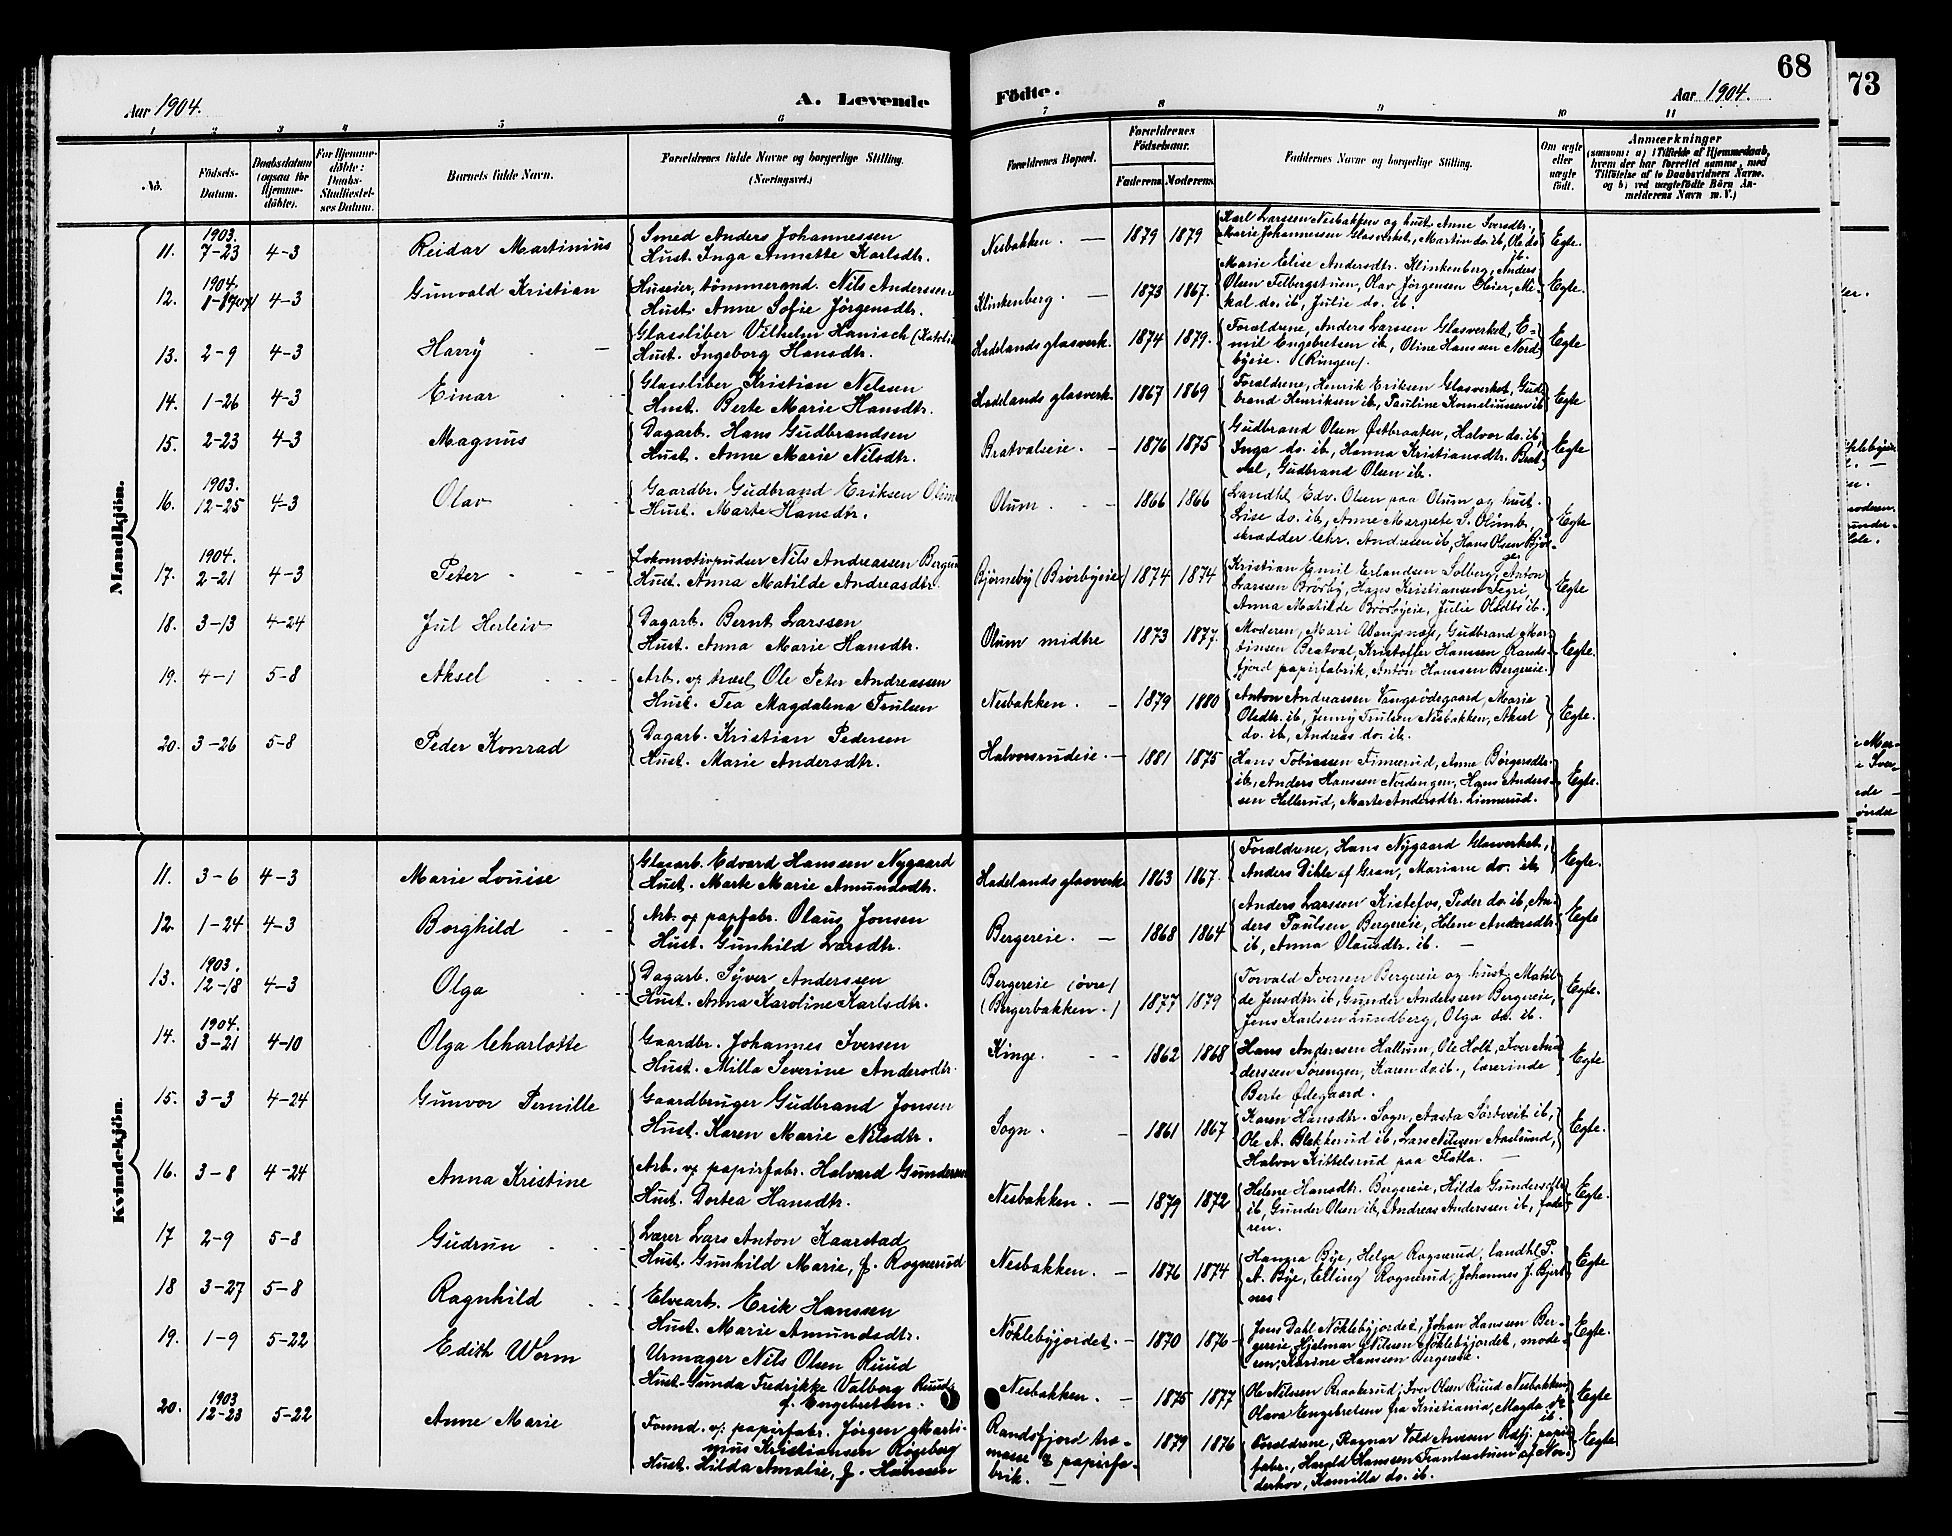 68
73
Aar 1904.
A. Levende
Födte.
Aar 1904.
1 2 3 4 5 6 7 8 9 10 11
No.
Födsels-Datum.
Daabsdatum (ogsaa for Hjemme-döbte).
For Hjemme-döbte: Daabs-Stadfæstel-ses Datum.
Barnets fulde Navn.
Forældrenes fulde Navne og borgerlige Stilling.
(Næringsvei.)
Forældrenes Bopæl.
Forældrenes Födselsaar.
Faderens. Moderens.
Faddernes Navne og borgerlige Stilling.
Om ægte eller uægte födt.
Anmærkninger
(saasom: a) i Tilfælde af Hjemmedaab,
hvem der har forrettet samme, med
Tilföielse af to Daabsvidners Navne.
og b) ved uægtefödte Börn An-
melderens Navn m. V.)
Mandkjön.
11. 1903. 7-23 4-3 Reidar Martinius
Smed Anders Johannessen
Hust. Inga Annette Karlsdtr.
Nesbakken. 1879 1879
Karl Larssen Nesbakken og hust. Anne Iversdtr.,
Marie Johannessen Glasverket, Martin do. ib, Ole do ib.
Egte.
12. 1904. 4-3 Gunvald Kristian
Huseier, tömmerand. Nils Anderssen
Hust. Anne Sofie Jörgensdtr.
Klinkenberg. 1873 1867.
Marie Elise Andersdtr. Klinkenberg, Anders
Olsen Felbergstuen, Olav Jörgensen Heier, Mi-
kal do. ib, Julie do. ib.
Egte.
13. 2-9 4-3 Harry
Glassliber Vilhelm Hanisch
Hust. Ingeborg Hansdtr.
Hadelands glasverk. 1874 1879.
Forældrene, Anders Larssen Glasverket, E-
mil Engebretsen ib, Oline Hansen Nord-
byeie. (Ringen).
Egte
14. 1-26 4-3 Einar
Glassliber Kristian Nelsen
Hust. Berte Marie Hansdtr.
Hadelands glasverk. 1867 1869
Forældrene, Henrik Eriksen Glasverket, Gud-
brand Henriksen ib, Pauline Korneliussen ib
Egte
15. 2-23 4-3 Magnus
Dagarb. Hans Gudbrandsen
Hust. Anne Marie Nilsdtr.
Bratvalseie. 1876 1875
Gudbrand Olsen Østbraaten, Halvor do. ib,
Inga do. ib, Hanna Kristiansdtr. Brat-
val, Gudbrand Olsen ib.
Egte
16. 1903. 12-25 4-3 Olav
Gaardbr. Gudbrand Eriksen Olum
Hust. Marte Hansdtr.
Olum. 1866 1866
Landhl. Edv. Olsen paa Olum og hust.
Lise do. ib, Anne Margrete S. Olumb.,
skrædder lehr. Andresen ib, Hans Olsen
Egte
17. 1904. 2-21 4-3 Peter
Lokomotivpudser Nils Andreassen
Hust. Anna Matilde Andreasdtr.
Björneby (Brörbyeie) 1874 1874
Kristian Emil Erlandsen Solberg, Anton
Larssen Brörby, Hans Kristiansen Tegri,
Anna Matilde Brörbyeie, Julie Olsdts ib.
Egte
18. 3-13 4-24 Jul Herleiv
Dagarb. Bernt Larssen
Hust. Anna Marie Hansdtr.
Olum midtre 1873 1877.
Moderen, Mari Wangsnæs, Gudbrand Mar-
tinsen Bratval, Kristoffer Hanssen Rands-
fjord papirfabrik, Anton Hanssen Bergereie.
Egte.
19. 4-1 5-8 Aksel
Arb. v/ træsl. Ole Peter Andreassen
Hust. Tea Magdalena Trulsen
Nesbakken. 1879 1880
Anton Andreassen Vangsödegaard, Marie
Olsdtr. ib, Jenny Trulsen Nesbakken, Aksel
do. ib, Andreas do. ib.
Egte.
20. 3-26 5-8 Peder Konrad
Dagarb. Kristian Pedersen
Hust. Marie Andersdtr.
Halvorsrudeie. 1881 1875
Hans Tobiassen Finnerud, Anne Börgersdtr.
ib, Anders Hanssen Nordengen, Hans Anders-
sen Hellerud, Marte Andersdtr. Linnerud.
Egte.
Kvindekjön.
11. 3-6 4-3 Marie Louise
Glasarb. Edvard Hanssen Nygaard
Hust. Marte Marie Amundsdtr.
Hadelands glasverk 1863 1867.
Forældrene, Hans Nygaard Glasverket,
Anders Dihle af Gran, Mariane do. ib.
Egte.
12. 1-24 4-3 Borghild
Arb. v/ papfabr. Olaus Jonsen
Hust. Gunhild Larsdtr.
Bergereie. 1868 1864
Anders Larssen Kistefos, Peder do. ib, An-
ders Paulsen Bergereie, Helene Andersdtr.
ib, Anna Olausdtr. ib.
Egte
13. 1903. 12-18 4-3 Olga
Dagarb. Syver Anderssen
Hust. Anna Karoline Karlsdtr.
Bergereie (övre)
(Bergerbakken.) 1877 1879
Torvald Iversen Bergereie og hust. Matil-
de Jensdtr. ib, Gunder Anderssen Bergereie,
Jens Karlsen Lundberg, Olga do. ib.
Egte.
14. 1904. 3-21 4-10 Olga Charlotte
Gaardbr. Johannes Iversen
Hust. Milla Severine Andersdtr.
Kinge. 1862 1868
Hans Anderssen Hallum, Ole Holt, Iver An-
derssen Sörengen, Karen do. ib., lærerinde
Berte Ødegaard.
Egte
15. 3-3 4-24 Gunvor Pernille
Gaardbruger Gudbrand Jonsen
Hust. Karen Marie Nilsdtr.
Sogn. 1861 1867
Karen Hansdtr. Sogn, Aasta Sörtveit ib,
Ole A. Blekkerud ib, Lars Nilssen Aaslund,
Halvor Kittelsrud paa Flatla.
Egte.
16. 3-8 4-24 Anna Kristine
Arb. v/ papirfabr. Halvard Gundersen
Hust. Dortea Hansdtr.
Nesbakken. 1879 1872
Helene Hansdtr. Bergereie, Hilda Gundersdtr.
ib, Gunder Olsen ib, Andreas Anderssen ib, fade-
ren.
Egte.
17 2-9 5-8 Gudrun
Lærer Lars Anton Kaarstad
Hust. Gunhild Marie, f. Rognerud
Nesbakken. 1876 1874
Hanna Bye, Helga Rognerud, landhl. P.
A. Bye, Elling Rognerud, Johannes J. Bjert-
nes.
Egte
18 3-27 5-8 Ragnhild
Elvearb. Erik Hanssen
Hust. Marie Amundsdtr.
Nöklebyjordet. 1870 1876
Jens Dahl Nöklebyjordet, Johan Hansen Ber-
gereie, Hjelmar Nilsen Nöklebyjordet, mode-
ren, Karine Hanssen Bergereie.
Egte.
19. 1-9 5-22 Edith Worm
Urmager Nils Olsen Ruud
Hust. Gunda Fredrikke Valborg Ruud
f. Engebretsen.
Nesbakken. 1875 1877
Ole Nilssen Braakerud, Iver Olsen Ruud Nesbakken
Olava Engebretsen fra Kristiania, Magda do. ib.
Egte
20. 1903 12-23 5-22 Anne Marie
Formd. v/ papirfabr. Jörgen Marti-
nius Kristiansen Rögeberg
Hust. Hilda Amalie, f. Hanssen
Randsfjord træ-
masse & papirfa-
brik. 1879 1876
Forældrene, Ragnar Vold Arnesen Rdfj. papir-
fabr., Harald Hanssen Trantæstuen af Nor-
derhov, Kamilla do. ib.
Egte